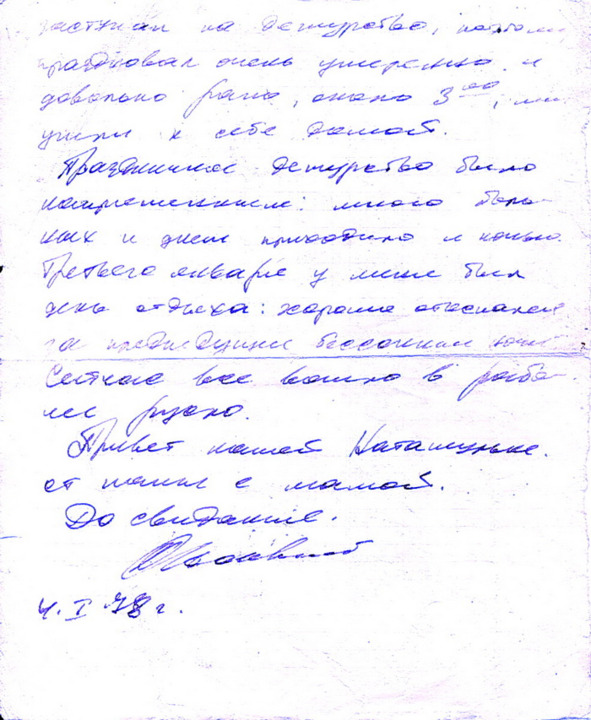 на дежурство, поэтому
праздновал очень умеренно и
довольно рано, около 3⁰⁰, мы
ушли к себе домой.
Праздничное дежурство было
напряженным: много боль-
ных и днем приходило и ночью.
Третьего января у меня был
день отдыха: хорошо отоспался
за предыдущие бессонные ночи.
Сейчас все вошло в рабо-
чее русло.
Привет нашей Наташуньке.
от папы с мамой.
До свидания.
4.I 78 г.